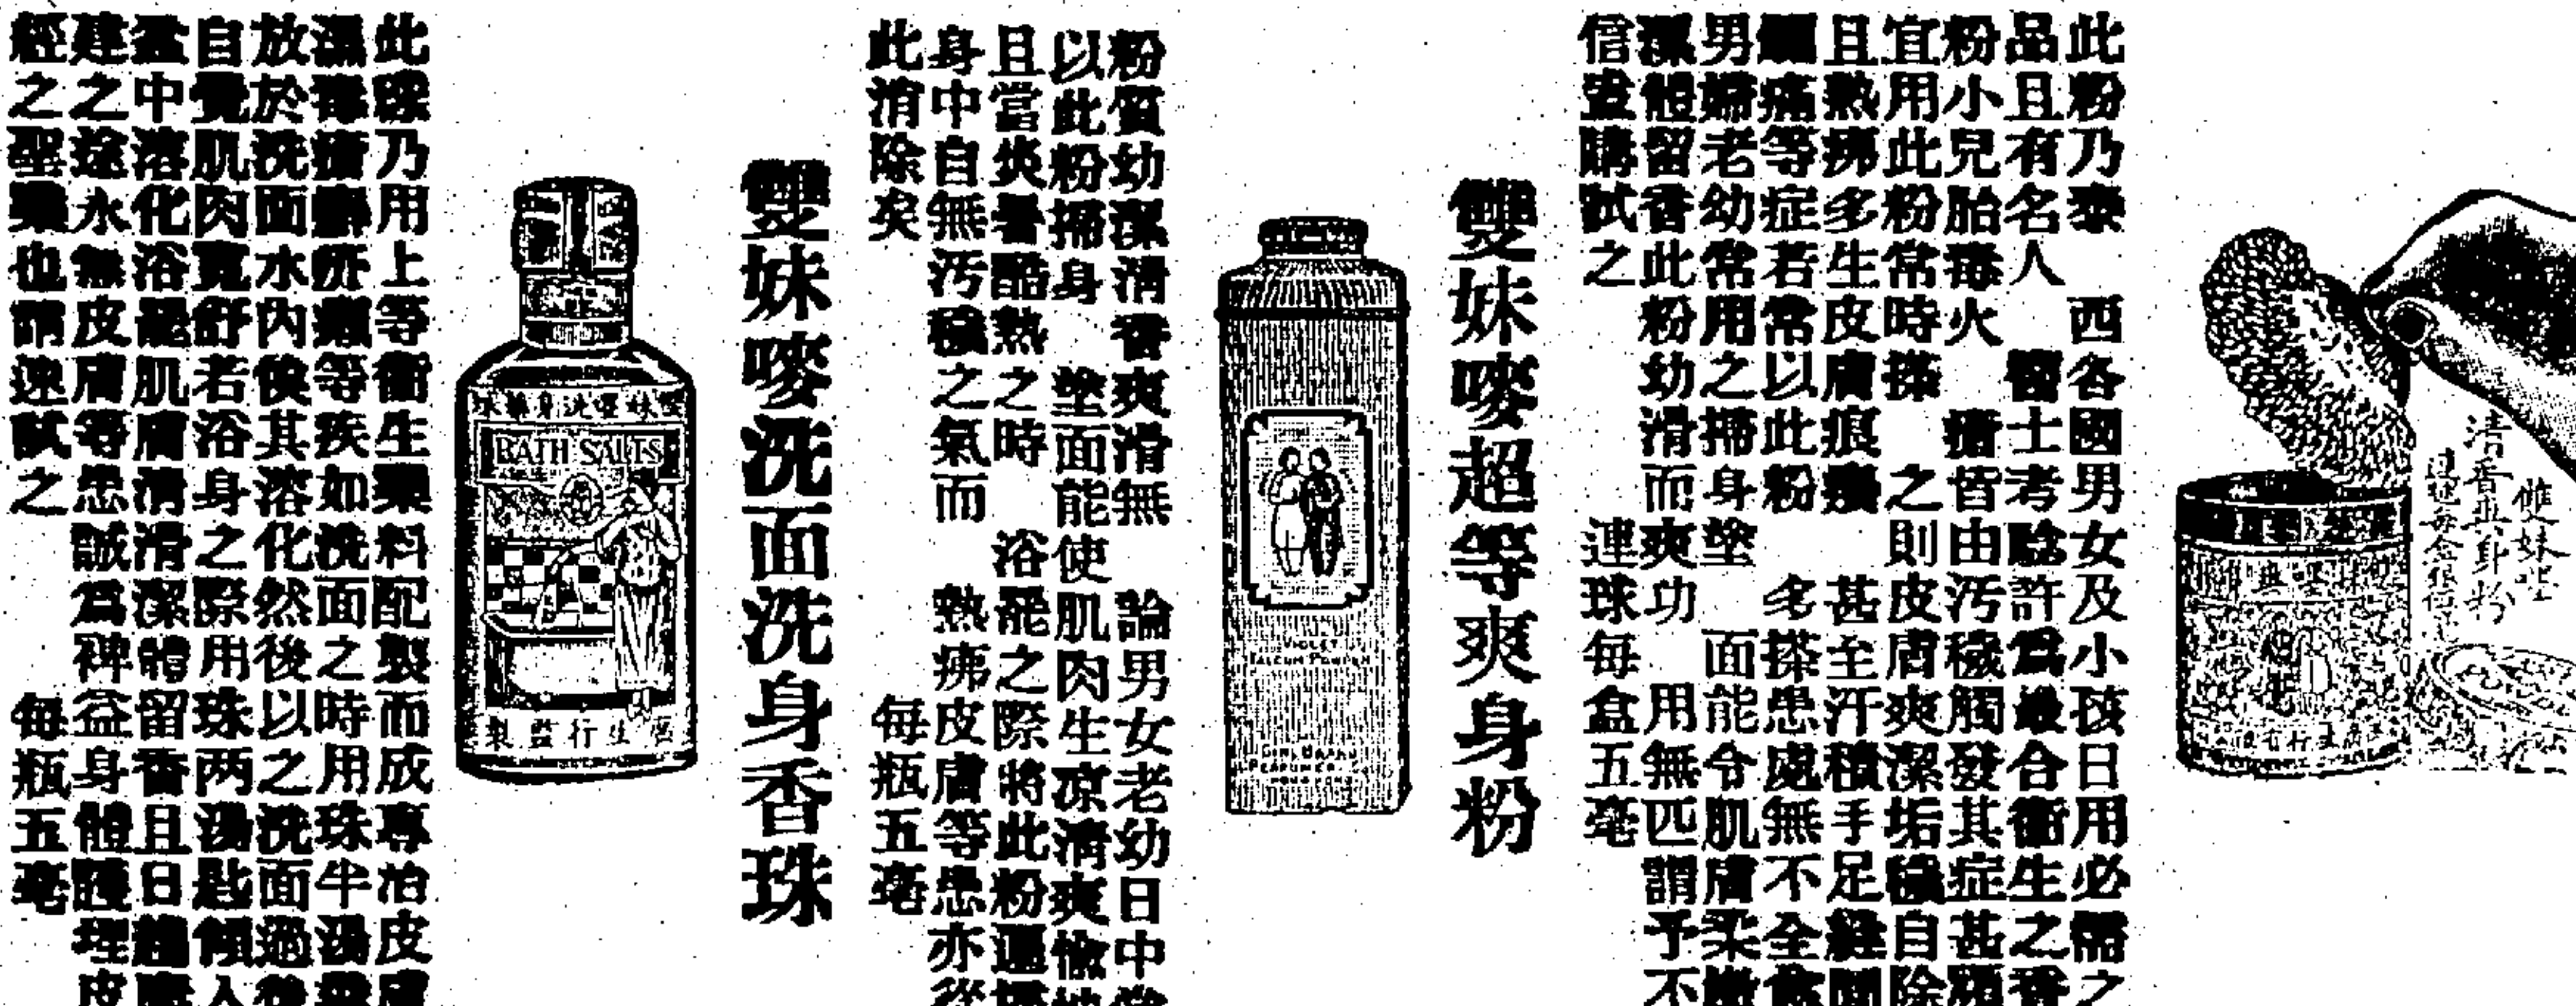 雙妹嘜
清香爽身粉
此粉乃泰西各國男女及小孩日用必需之
品且有名人醫士考騐許為最合衛生之香
粉小兒胎毒火瘡皆由汚穢觸發其症甚
宜用此粉常時搽之則皮膚爽潔垢穢自除
且熱疿多生皮膚痕癢甚至汗積手足縫間
爛痛等症若常以此粉多搽患處無不全愈
男婦老幼常用之掃身塗面能令肌膚柔嫩
潔體留香此粉幼滑而爽功用無匹謂予不
信盍購試之 連球每盒五毫
雙妹嘜超等爽身粉
VIOLET
TALCUM POWDER
粉質幼潔清香爽滑無論男女老幼日中常
以此粉掃身塗面能使肌肉生凉清爽愉
且當炎暑酷熱之時浴罷之際將此粉遍掃
身中自無汚穢之氣而熱疿皮膚等患亦從
此消除矣 每瓶五毫
雙妹嘜洗面洗身香珠
BATH SALTS
此珠乃用上等衛生藥料配製而成專治皮膚
濕毒瘡癬疥癩等疾如洗面之時用珠半湯
放於洗面水內俟其溶化然後以之洗面過後
自覺肌肉寬舒若浴身之際用珠两湯匙傾入
盆中溶化浴罷肌膚清滑潔體留香且日趨
建之途永無皮膚等患誠為裨益身體護理皮
經之聖藥也請速試之 每瓶五毫